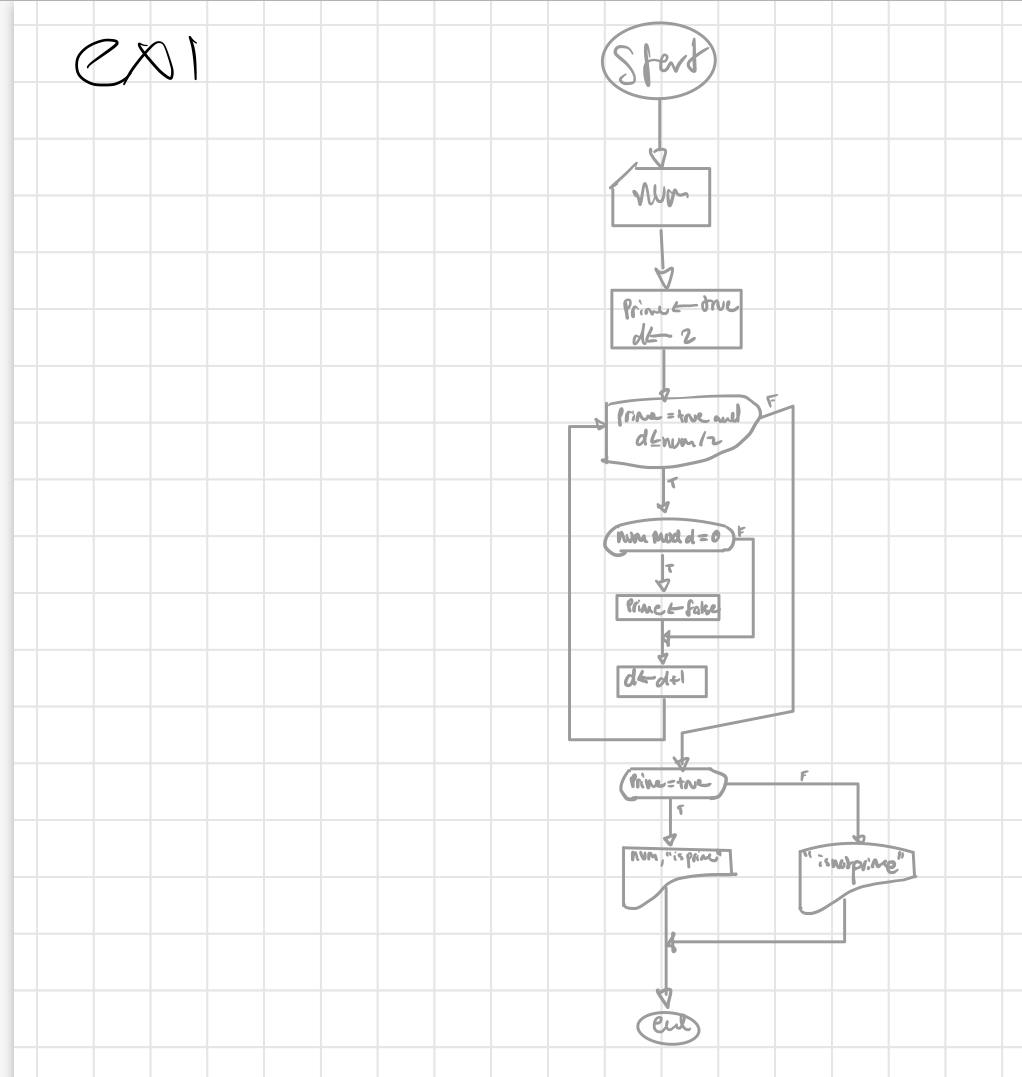 ex1
Start
num
Prime ← true
d ← 2
Prime = true and
d ≤ num/2
F
T
num mod d = 0
F
T
Prime ← false
d ← d+1
Prime = true
F
T
num, "is prime"
"is not prime"
end